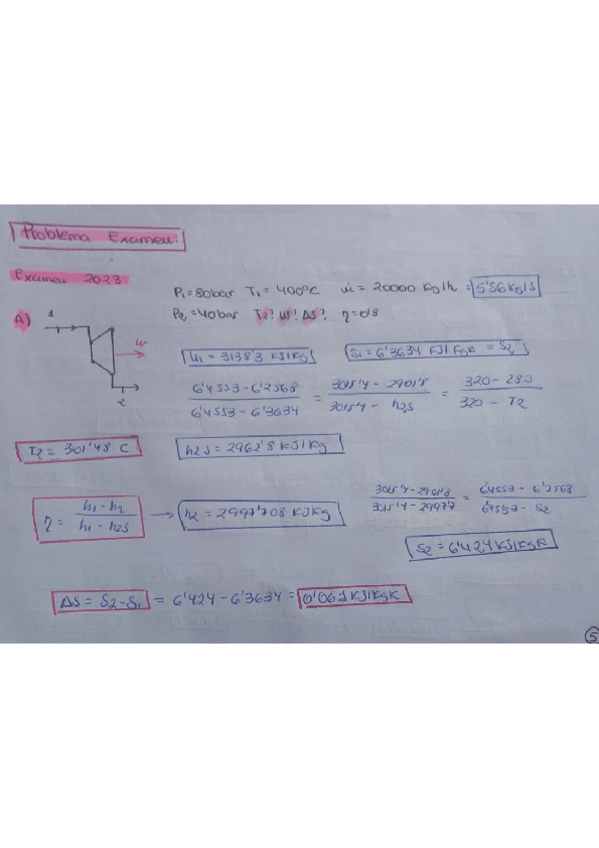 Problema Examen:
Examen 2023
P₁ = 80bar T₁ = 400°C ṁ = 20000 kg/h = 5'56 kg/s
A)
P₂ = 40bar T₂? w? ΔS? η = 0'8
1
w
2
h₁ = 3138'3 KJ/Kg
S₁ = 6'3634 KJ/KgK = S₂
6'4553 - 6'2568 / 6'4553 - 6'3634 = 3015'4 - 2901'8 / 3015'4 - h₂s = 320 - 280 / 320 - T₂
T₂ = 301'48 C
h₂s = 2962'8 KJ/Kg
η = h₁ - h₂ / h₁ - h₂s → h₂ = 2997'708 KJ/Kg
3015'4 - 2901'8 / 3015'4 - 2997'7 = 6'4553 - 6'2568 / 6'4553 - S₂
S₂ = 6'424 KJ/KgK
ΔS = S₂ - S₁ = 6'424 - 6'3634 = 0'061 KJ/KgK
5